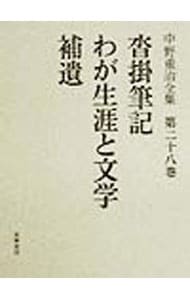 中野重治全集 第二十八巻
沓掛筆記
わが生涯と文学
補遺
筑摩書房